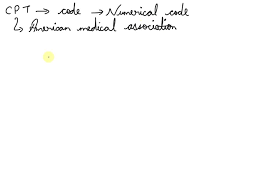 CPT → code → Numerical code
↳ American medical association